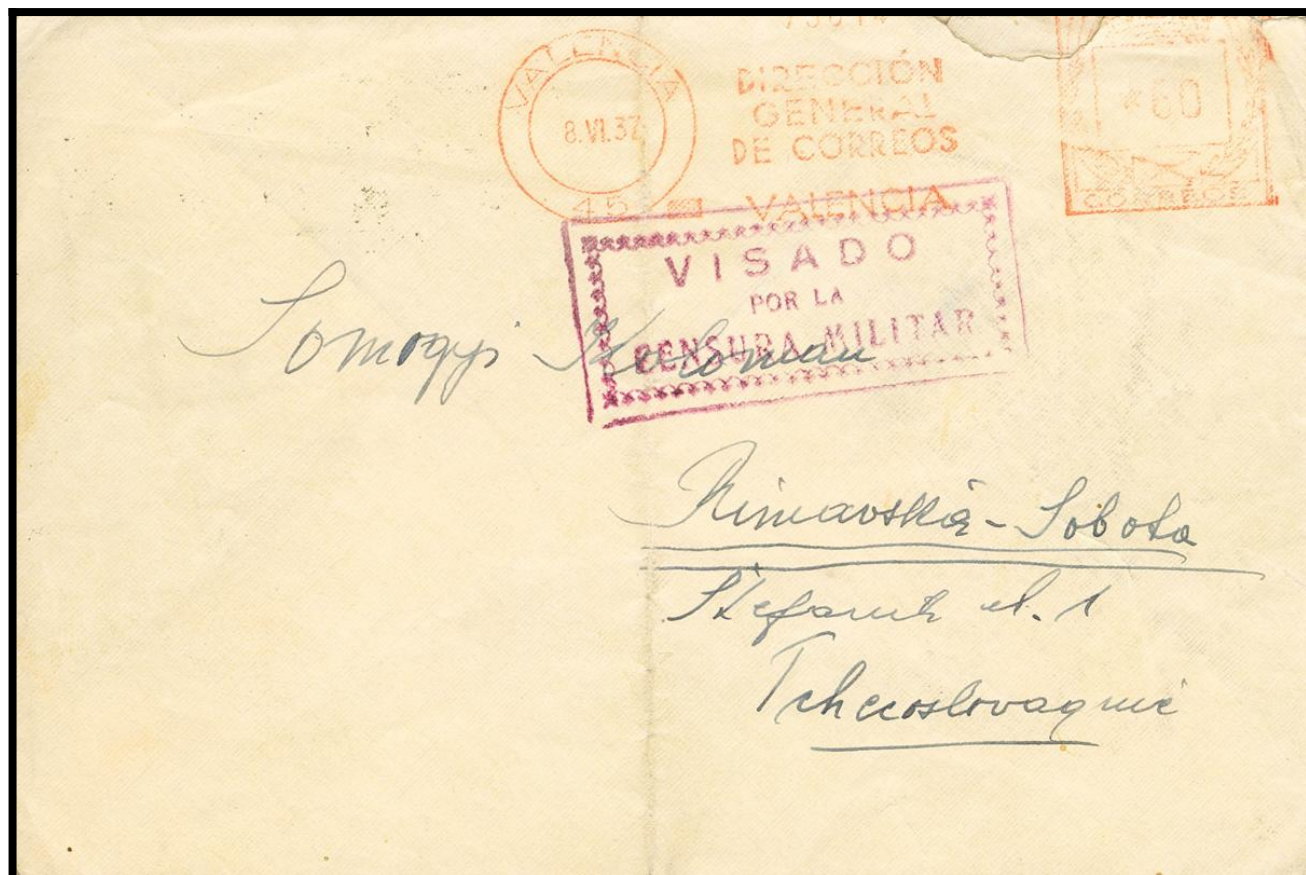 VALENCIA
8.VI.37
45
DIRECCIÓN
GENERAL
DE CORREOS
VALENCIA
*60
CORREOS
VISADO
POR LA
CENSURA MILITAR
Somogyi Koloman
Rimavská-Sobota
Štefanik
1
Tchecoslovaquie